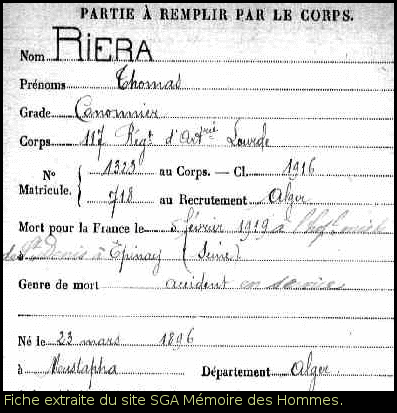 PARTIE À REMPLIR PAR LE CORPS.
Nom RIERA
Prénoms Thomas
Grade Canonnier
Corps 117 Régt d'Artrie Lourde
N° Matricule. { 1323 au Corps. — Cl. 1916
718 au Recrutement Alger
Mort pour la France le 5 février 1919 à l'
St Denis à Epinay (Seine)
Genre de mort accident en service
Né le 23 mars 1896
à Mustapha Département Alger
Fiche extraite du site SGA Mémoire des Hommes.